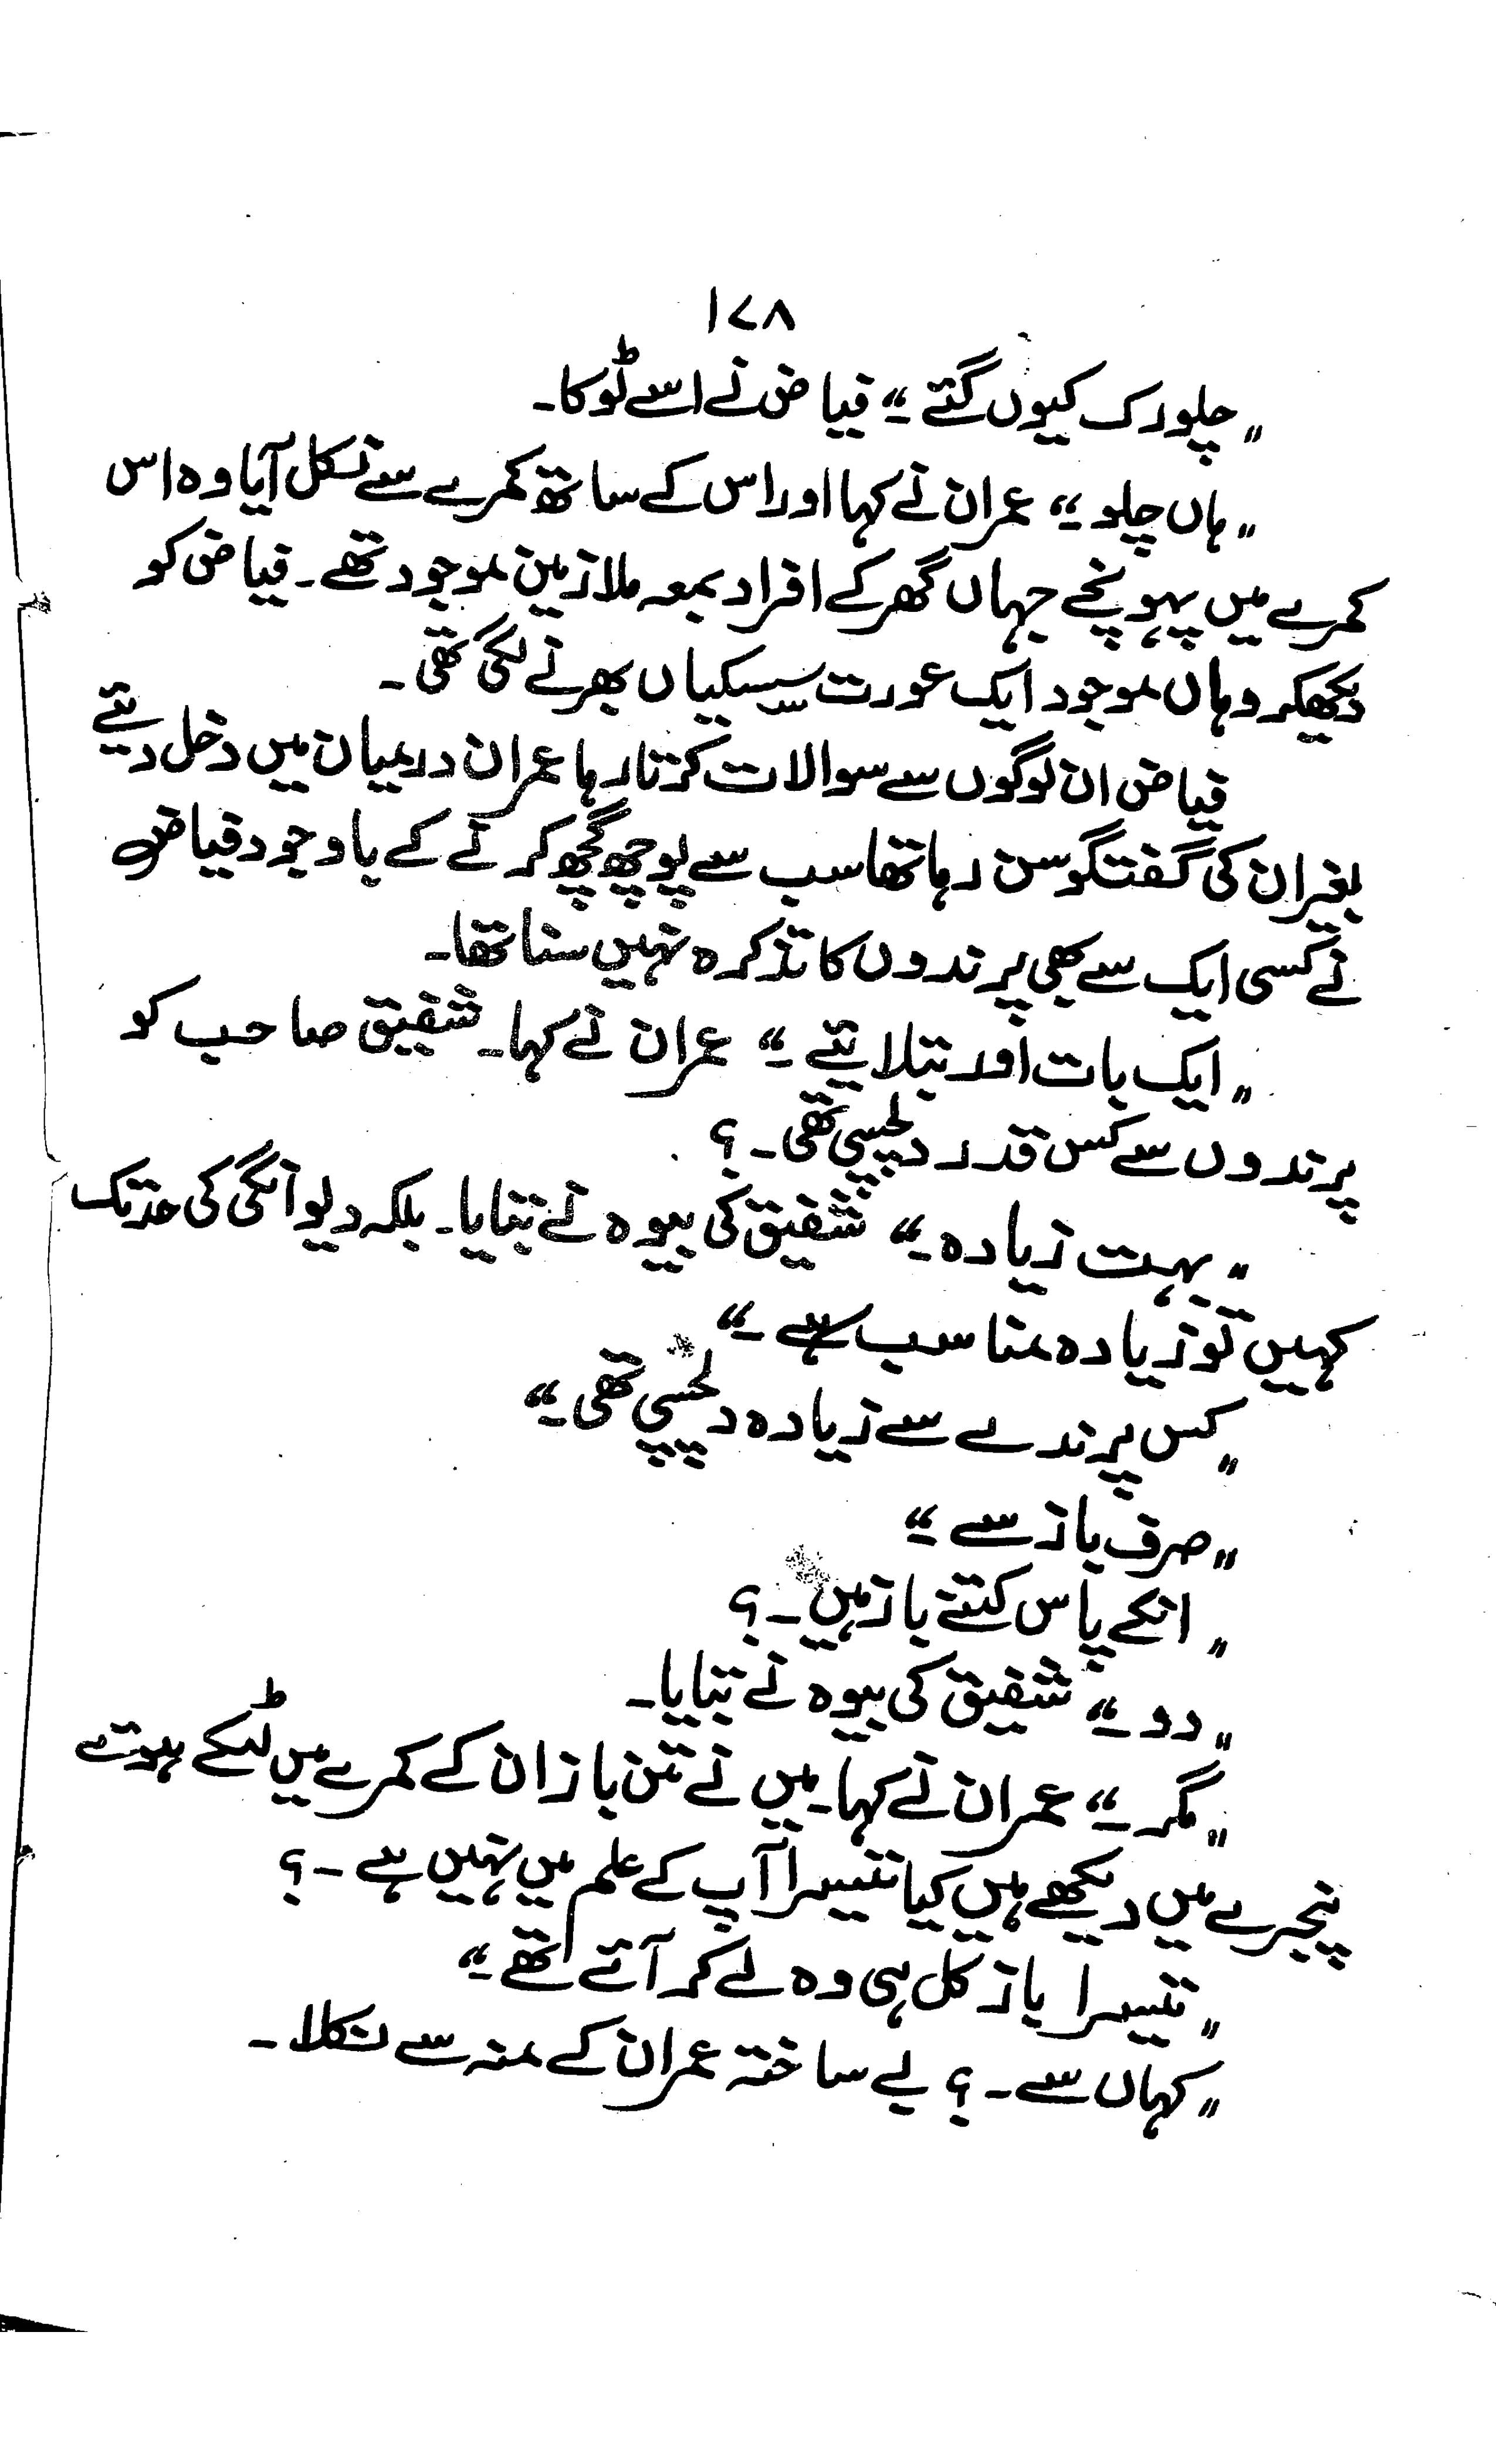 ۱۷۸
"چلو رک کیوں گئے۔" فیاض نے اسے ٹوکا۔
"ہاں چلو۔" عمران نے کہا اور اس کے ساتھ کمرے سے نکل آیا وہ اس
کمرے میں پہونچے جہاں گھر کے افراد بمعہ ملازمین موجود تھے۔ فیاض کو
دیکھکر وہاں موجود ایک عورت سسکیاں بھرنے لگی تھی۔
فیاض ان لوگوں سے سوالات کرتا رہا عمران درمیان میں دخل دیئے
بغیر ان کی گفتگو سن رہا تھا سب سے پوچھ گچھ کرنے کے باوجود فیاض
نے کسی ایک سے بھی پرندوں کا تذکرہ نہیں سنا تھا۔
"ایک بات اور بتلائیے۔" عمران نے کہا۔ شفیق صاحب کو
پرندوں سے کس قدر دلچسپی تھی۔؟
"بہت زیادہ۔" شفیق کی بیوہ نے بتایا۔ بلکہ دیوانگی کی حد تک
کہیں تو زیادہ مناسب ہے۔"
"کس پرندے سے زیادہ دلچسپی تھی۔"
"صرف باز سے۔"
"انکے پاس کتنے باز ہیں۔؟
"دو۔" شفیق کی بیوہ نے بتایا۔
"مگر۔" عمران نے کہا۔ میں نے تین باز ان کے کمرے میں لٹکے ہوئے
پنجرے میں دیکھے ہیں کیا تیسرا آپ کے علم میں نہیں ہے۔؟
"تیسرا باز کل ہی وہ لے کر آئے تھے۔"
"کہاں سے۔؟ بے ساختہ عمران کے منہ سے نکلا۔